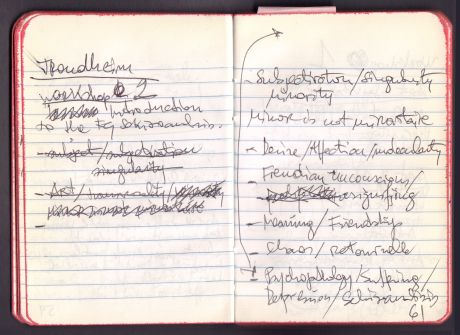 Trondheim
workshop 2
introduction
to the
- subject / subjectivation
singularity
- Art /
-
- Subjectivation / singularity
minority
Minor is not minoritaire
- Desire / Affection /
Freudian Unconscious /
-
- Meaning / Friendship
- chaos / retournelle
- Psychopathology / Suffering /
Depression / Schizoanalysis
61